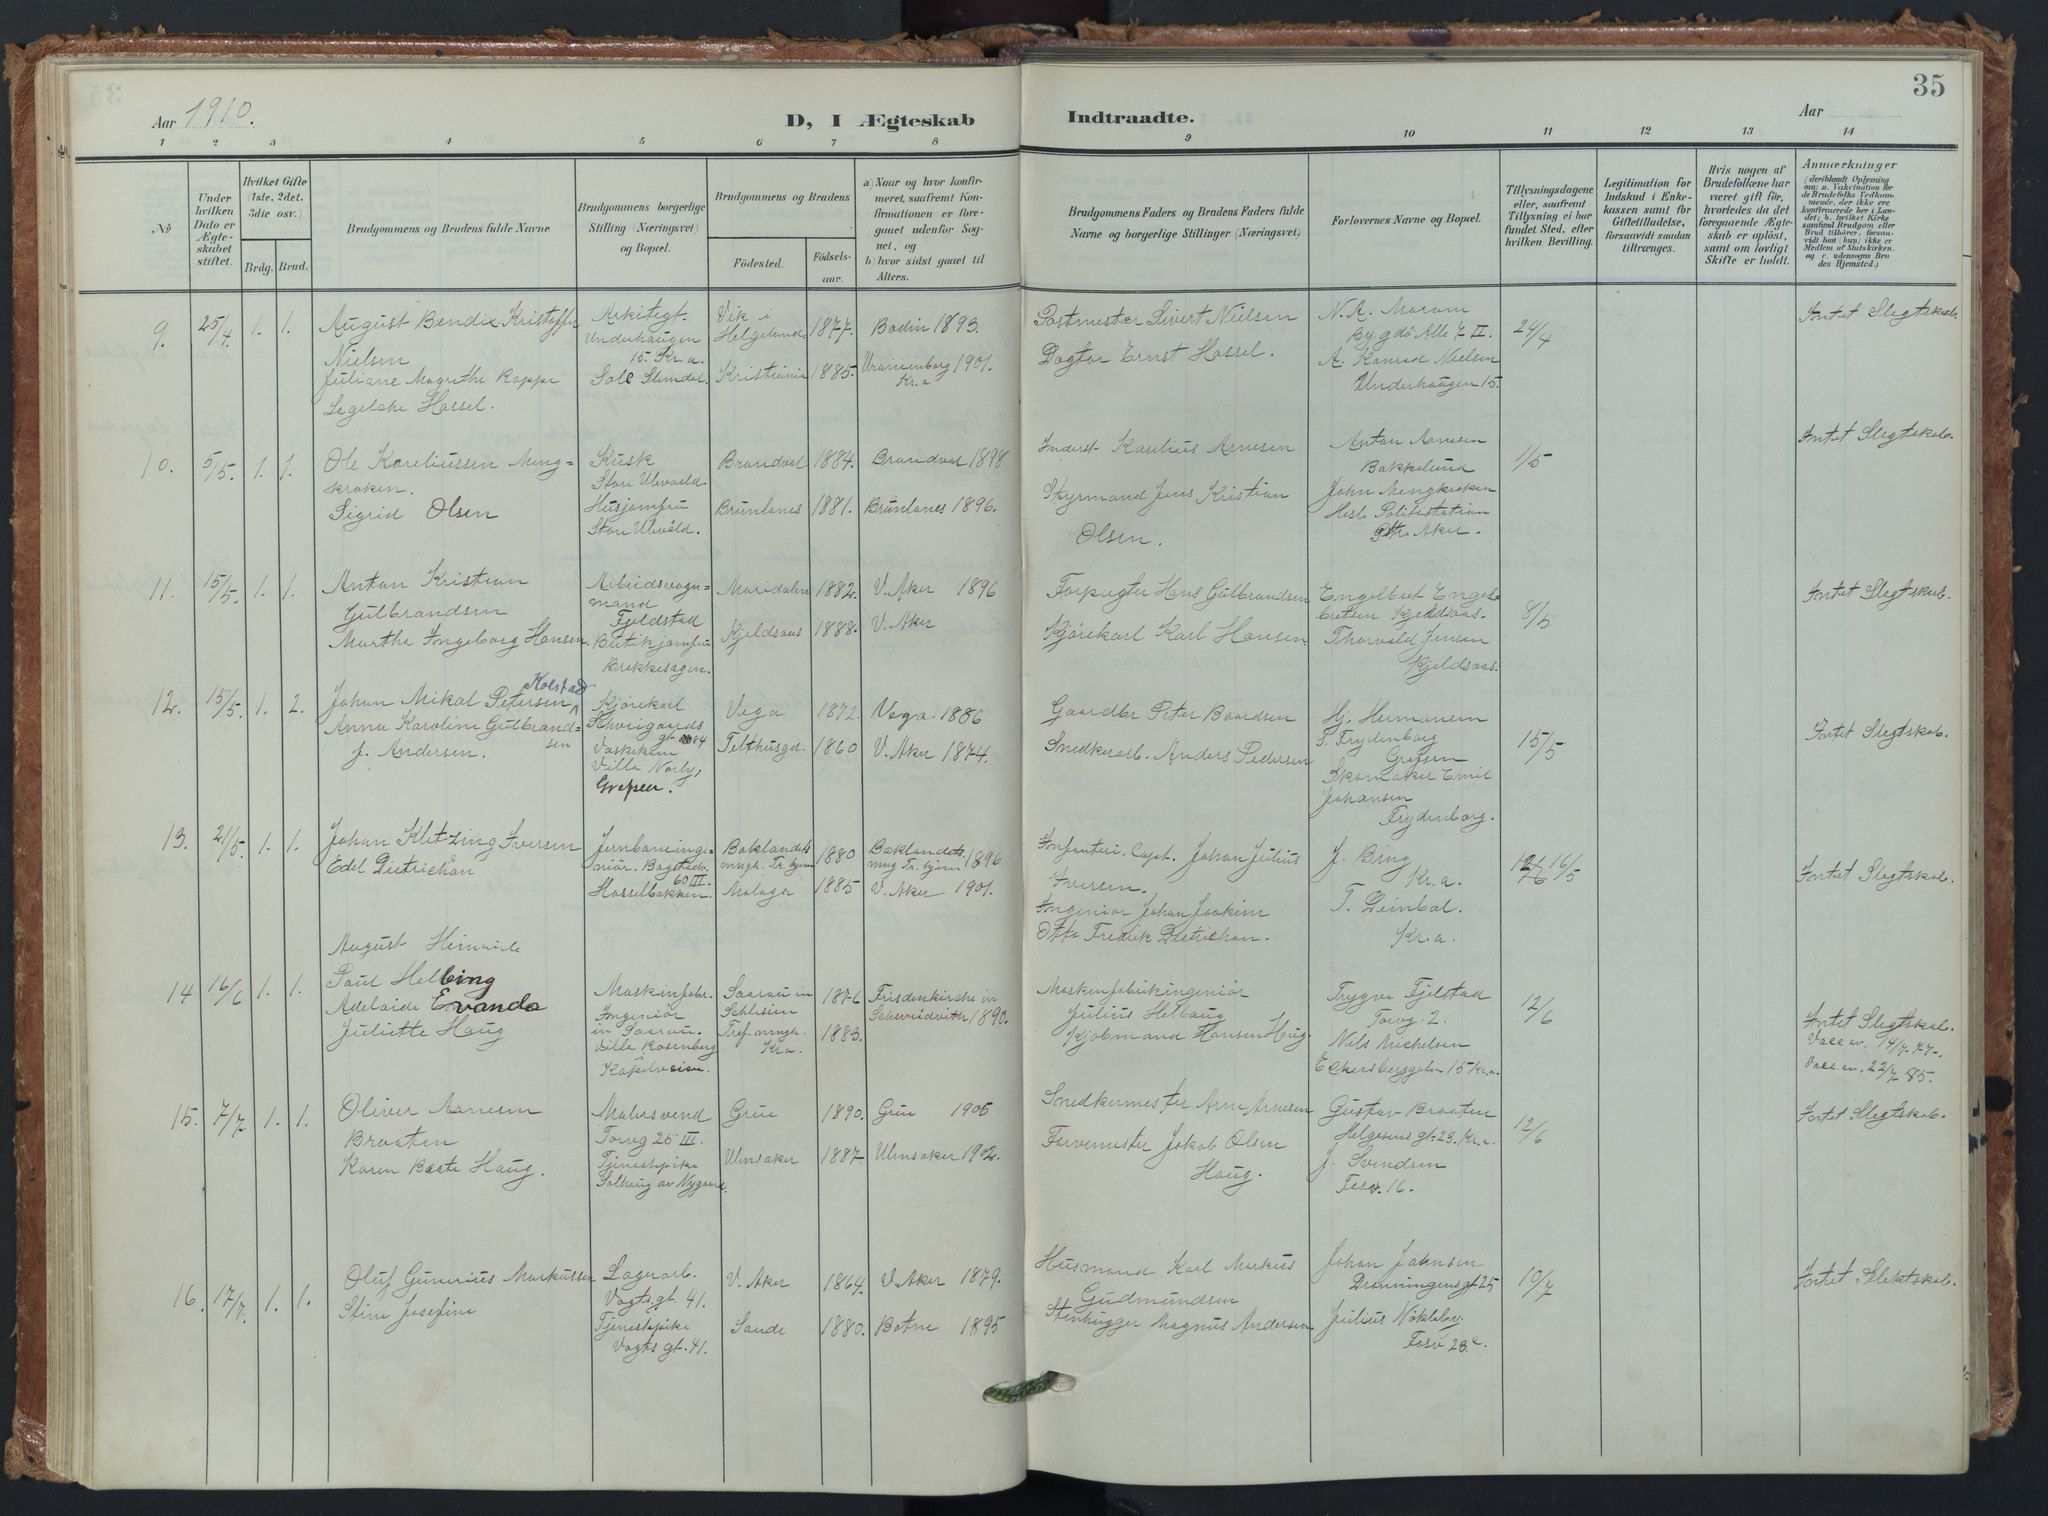 35
Aar 1910.
D, I Ægteskab Indtraadte.
Aar
1 2 3 4 5 6 7 8 9 10 11 12 13 14
No
Under hvilken Dato er Ægteskabet stiftet.
Hvilket Gifte (1ste, 2det, 3die osv.)
Brdg. Brud.
Brudgommens og Brudens fulde Navne
Brudgommens borgerlige Stilling (Næringsvei) og Bopæl.
Brudgommens og Brudens
Födested. Födselsaar.
a) Naar og hvor konfirmeret, saafremt Konfirmationen er foregaaet udenfor Sognet, og
b) hvor sidst gaaet til Alters.
Brudgommens Faders og Brudens Faders fulde Navne og borgerlige Stillinger (Næringsvei)
Forlovernes Navne og Bopæl.
Tillysningsdagene eller, saafremt Tillysning ei har fundet Sted, efter hvilken Bevilling.
Legitimation for Indskud i Enkekassen samt for Giftetilladelse, forsaavidt saadan tiltrænges.
Hvis nogen af Brudefolkene har været gift för, hvorledes da det foregaaende Ægteskab er oplöst, samt om lovligt Skifte er holdt.
Anmærkninger
(deriblandt Oplysning om: a. Vakcination for de Brudefolks Vedkommende, der ikke ere konfirmerede her i Landet; b. hvilket Kirkesamfund Brudgom eller Brud tilhörer, forsaavidt han (hun) ikke er Medlem af Statskirken, og c. udensogns Brudes Hjemsted.)
9. 25/4 1. 1. August Bendix Kristoffer
Nielsen
Juliane Magrethe Rappe
Segelcke Hassel.
Arkitegt.
Underhaugen
15. Kr.a.
Vik i
Helgeland 1877. Bodin 1893.
Kristiania 1885. Uranienborg 1901.
Kr.a
Postmester Sivert Nielsen
Doktor Ernst Hassel.
N. R. Maram
Bygdö Alle 7 II.
A. Konrad Nielsen
Underhaugen 15.
24/4
Intet Slegtskab.
10. 5/5. 1. 1. Ole Kareliussen Mengkroken.
Sigrid Olsen
Kusk
Store Ulevold
Husjomfru
Store Ulevåld.
Brandval 1884. Brandval 1898
Brunlanes 1881. Brunlanes 1896.
Inderst Karelius Arnesen
Styrmand Jens Kristian
Olsen.
Anton Arnesen
Bakkelund
John Mengkroken
Hesle Politistation
Aker.
1/5
Intet Slegtskab.
11. 15/5. 1. 1. Anton Kristian
Gulbrandsen
Martha Ingeborg Hansen.
Arbeidsvognmand
Fjeldstad
Butikjomfru
Brekkesagen.
Maridalen 1882. V. Aker 1896
Kjeldsaas 1888. V. Aker
Forpagter Hans Gulbrandsen
Kjörekarl Karl Hansen.
Engelbret Engelbretsen Kjeldsaas.
Thorvald Jensen
Kjeldsaas.
8/5
Intet Slegtskab.
12. 15/5. 1. 2. Johan Mikal Petersen Kolstad
Anna Karoline Gulbrandsen
f. Andersen.
Kjörekarl
Schweigaards
gt 84
Vaskekone
Villa Norby,
Grefsen.
Vega 1872. Vega 1886
Telthusgd. 1860 V. Aker 1874.
Gaardbr Peter Baardsen
Snedkerarb. Anders Pedersen
Hj. Hermansen
P. Frydenborg
Grefsen
Skomaker Emil
Johansen
Frydenborg.
15/5
Intet Slegtskab.
13. 21/5. 1. 1. Johan Kletzing Iversen
Edel Dietrichson
Jernbaneingeniör. Bogstadv.
60 III.
Hasselbakken.
Baklandets
mngh. Tr.hjem 1880 Baklandets
mng Tr.hjem 1896.
Malaga 1885 V. Aker 1901.
Infanteri. Capt. Johan Julius
Iversen.
Ingeniör Johan Joakim
Otto Fredrik Dietrichson.
J. Bing
Kr.a.
T. Deinbol.
Kr.a.
16/5
Intet Slegtskab.
14 16/6 1. 1. August Heinride
Paul Helbing
Adelaide Evanda
Juliette Haug
Maskinfabr.
Ingeniör
in Saarau.
Villa Rosenberg
Kapelveien.
Saarau in
Schlesien 1876 Fridenkirche in
Schweidnith 1890.
Tref. mngh.
Kr.a. 1883.
Maskinfabrikingeniör
Julius Helbing
Kjöbmand Hansen Haug
Trygve Fjelstad
Torvg 2.
Nils Michelsen
Eckersbergsgaten 15 Kr.a.
12/6
Intet Slegtskab.
Vacc av. 14/7 77.
Vacc av. 22/7 85.
15. 7/7 1. 1. Oliver Arnesen
Braaten
Karen Beate Haug.
Malersvend
Torvg 25 III.
Tjenestepike
Solhaug av Nygaard.
Grue 1890. Grue 1905
Ulensaker 1887. Ulensaker 1902.
Snedkermester Arne Arnesen
Farvemester Jakob Olsen
Haug.
Gustav Braaten
Helgesens gt. 23. Kr.a.
J. Svendsen
Fosv. 16.
12/6
Intet Slegtskab.
16. 17/7. 1. 1. Oluf Gunerius Markussen
Stine Josefine
Lagerarb.
Vogts gt. 41.
Tjenestepike
Vogts gt. 41.
V. Aker 1864. V. Aker 1879.
Sande 1880. Botne 1895
Husmand Karl Markus
Gudmundsen
Stenhugger Magnus Andersen
Johan Johnsen
Dronningensgt 25
Julius Nökleby.
Fosv 23.c
10/7
Intet Slektskab.